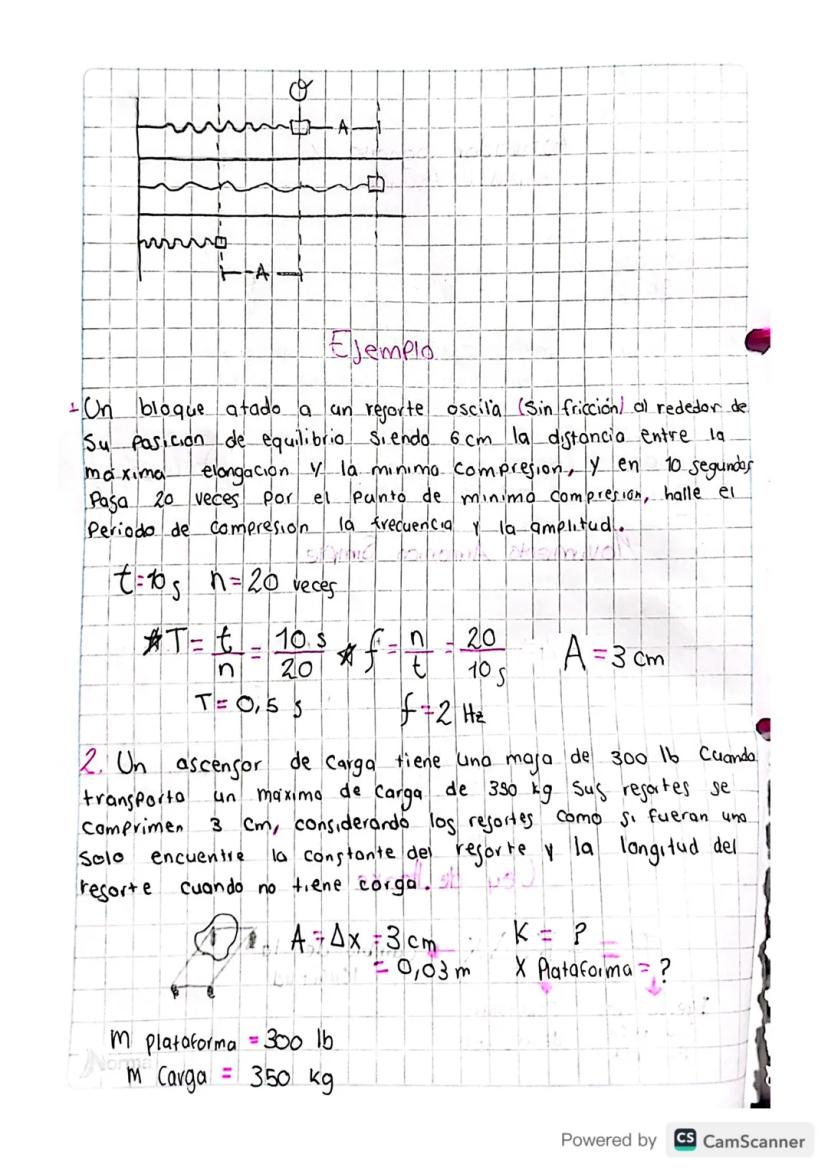 O
A
A
Ejemplo
1- Un bloque atado a un resorte oscila (Sin fricción) al rededor de
Su Posición de equilibrio siendo 6 cm la distancia entre la
máxima elongación y la minima compresion, y en 10 segundos
Pasa 20 veces por el punto de minima compresion, halle el
Periodo de compresion la frecuencia y la amplitud.
t=10 s n=20 veces
*T= t/n = 10 s/20 * f= n/t = 20/10 s A = 3 cm
T= 0,5 s f=2 Hz
2. Un ascensor de carga tiene una masa de 300 lb Cuando
transporta un máximo de carga de 350 kg Sus resortes se
comprimen 3 cm, considerando los resortes como si fueran uno
Solo encuentre la constante del resorte y la longitud del
resorte cuando no tiene carga.
A = Δx = 3 cm K = ?
= 0,03 m X Plataforma = ?
m plataforma = 300 lb
Norma
m Carga = 350 kg
Powered by CS CamScanner